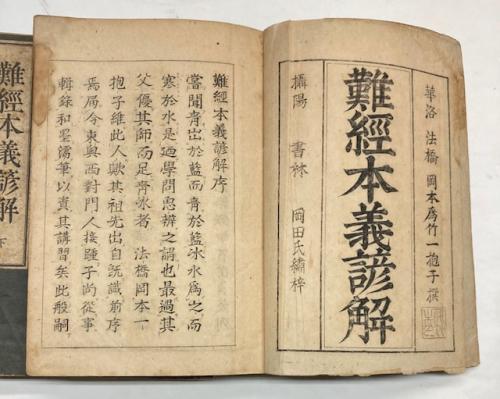 華洛 法橋 岡本為竹一抱子撰
難經本義諺解
攝陽 書林 岡田氏繡梓
難經本義諺解序
嘗聞青出於藍而青於藍冰水為之而
寒於水是迺學問思辨之謂也最過其
父優其師而足齊水者 法橋岡本一
抱子維此人歟其祖先出自
焉居今東奧西對門人接踵子尚從事
輯錄和墨濡筆以資其講習矣此般嗣
難經本義諺解 下